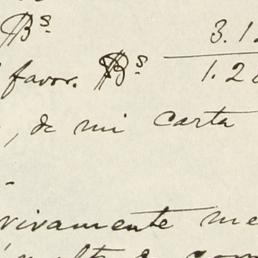 Bs. 3.1
favor. Bs. 1.2
, de mi carta
vivamente me